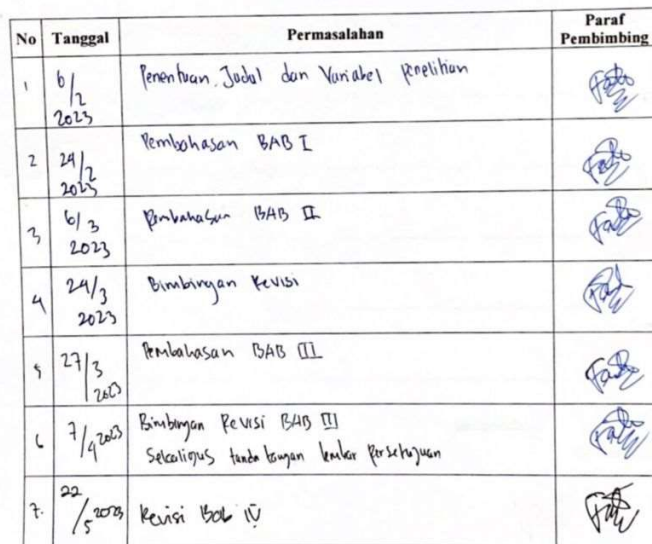 No Tanggal Permasalahan Paraf Pembimbing
1 6/2 2023 Penentuan Judul dan Variabel Penelitian
2 24/2 2023 Pembahasan BAB I
3 6/3 2023 Pembahasan BAB II
4 24/3 2023 Bimbingan Revisi
5 27/3 2023 Pembahasan BAB III
6 7/4 2023 Bimbingan Revisi BAB III
Sekaligus tanda tangan lembar Persetujuan
7. 22/5 2023 Revisi Bab IV